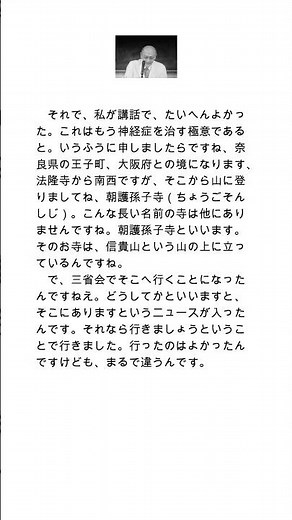 それで、私が講話で、たいへんよかっ
た。これはもう神経症を治す極意である
と。いうふうに申しましたらですね、奈
良県の王子町、大阪府との境になります、
法隆寺から南西ですが、そこから山に登
りましてね、朝護孫子寺（ちょうごそん
しじ）。こんな長い名前の寺は他にあり
ませんですね。朝護孫子寺といいます。
そのお寺は、信貴山という山の上に立っ
ているんですね。
で、三省会でそこへ行くことになった
んですねえ。どうしてかといいますと、
そこにありますというニュースが入った
んです。それなら行きましょうというこ
とで行きました。行ったのはよかったん
ですけども、まるで違うんです。